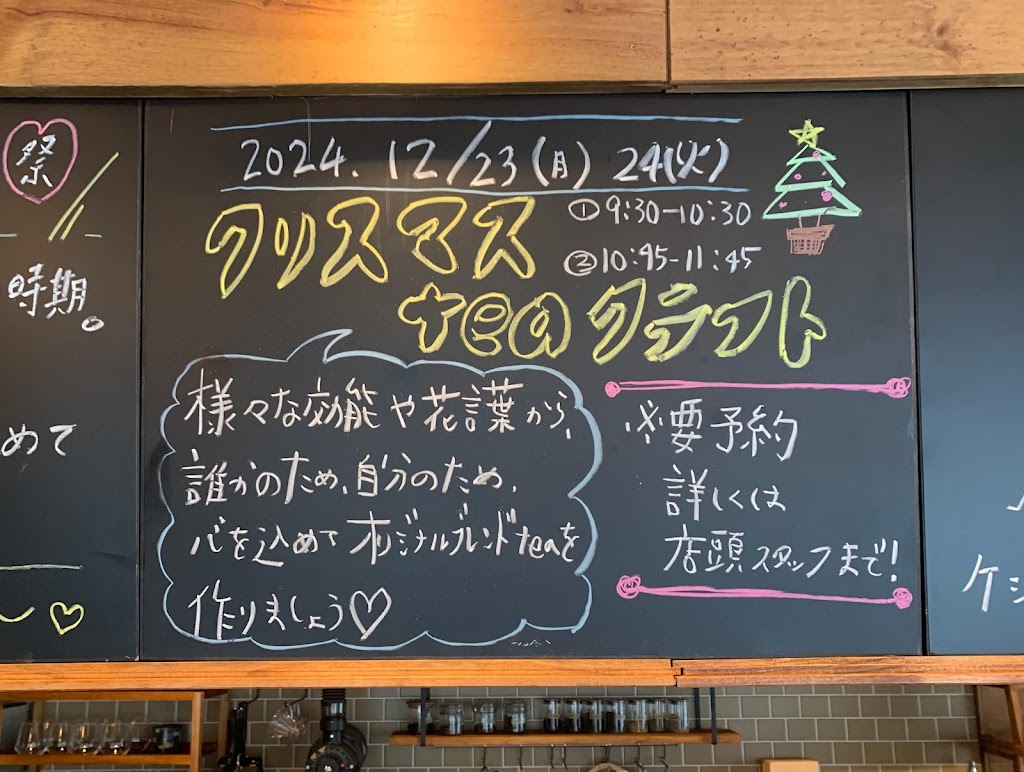 祭
時期。
めて
2024.12/23(月)24(火)
クリスマス
①9:30-10:30
②10:45-11:45
teaクラフト
様々な効能や花言葉から、
誰かのため、自分のため、
心を込めてオリジナルブレンドteaを
作りましょう♡
※要予約
詳しくは
店頭スタッフまで!